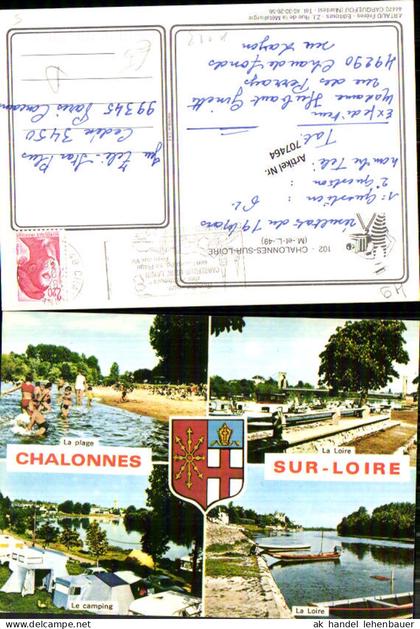 ARTAUD Frères - Editeurs - Z.I. - Rue de la Métallurgie
44470 CARQUEFOU (Nantes) - Tél. 40-30-26-56
102 - CHALONNES-SUR-LOIRE
(M.-et-L.-49)
Résultats du 19 Mars
1° Question
2° Question
Nombre Tél
Tal
Expéditeur
Madame Thibaut Ginette
rue des Perrays
49290 Chaudefonds
sur Layon
Jeu Télé-Star Plus
Cedex 3450
99345 Paris Concours
2,20
Artikel Nr.
707464
La plage
La Loire
CHALONNES
SUR-LOIRE
Le camping
La Loire
© ak handel lehenbauer